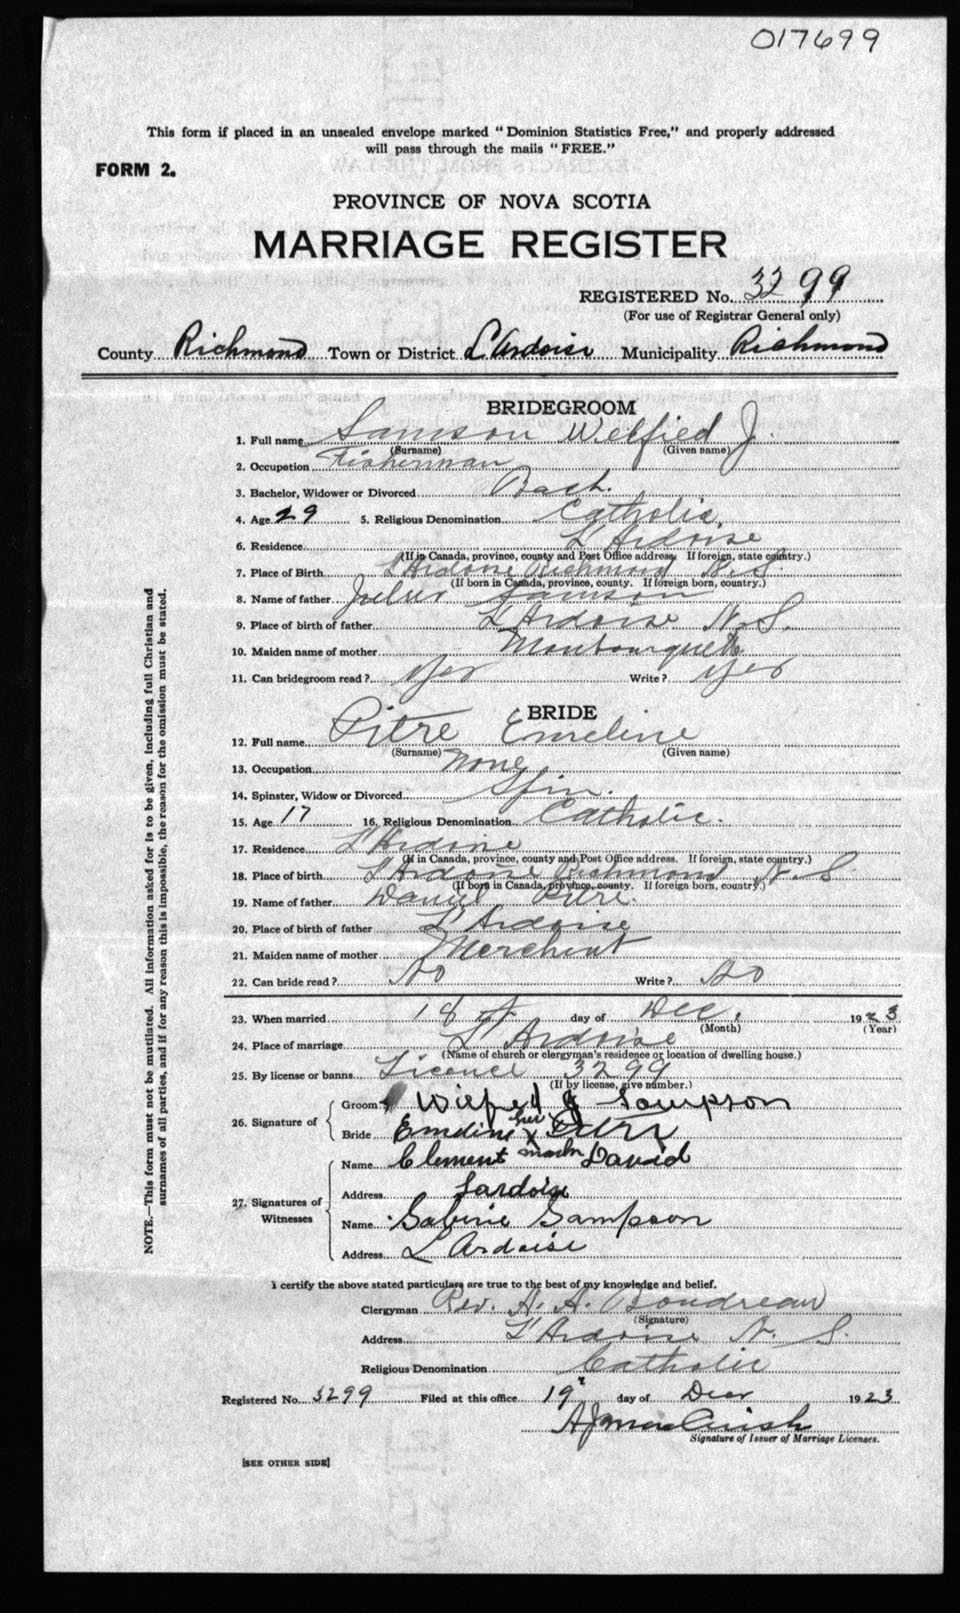 017699
This form if placed in an unsealed envelope marked "Dominion Statistics Free," and properly addressed
will pass through the mails "FREE."
FORM 2.
PROVINCE OF NOVA SCOTIA
MARRIAGE REGISTER
REGISTERED No. 3299
(For use of Registrar General only)
County Richmond Town or District L'Ardoise Municipality Richmond
BRIDEGROOM
1. Full name Samson Welfied J.
(Surname) (Given name)
2. Occupation Fisherman
3. Bachelor, Widower or Divorced Bach.
4. Age 29 5. Religious Denomination Catholic.
6. Residence L'Ardoise
(If in Canada, province, county and Post Office address. If foreign, state country.)
7. Place of Birth L'Ardoise Richmond N.S.
(If born in Canada, province, county. If foreign born, country.)
8. Name of father Samson
9. Place of birth of father L'Ardoise N.S.
10. Maiden name of mother Monbourquette
11. Can bridegroom read? Yes Write? Yes
BRIDE
12. Full name Pitre Emeline
(Surname) (Given name)
13. Occupation None
14. Spinster, Widow or Divorced Spin.
15. Age 17 16. Religious Denomination Catholic.
17. Residence L'Ardoise
(If in Canada, province, county and Post Office address. If foreign, state country.)
18. Place of birth L'Ardoise Richmond N.S.
(If born in Canada, province, county. If foreign born, country.)
19. Name of father Daniel Pitre.
20. Place of birth of father L'Ardoise
21. Maiden name of mother Merchent
22. Can bride read? No Write? No
23. When married 18th day of Dec. 1923
(Month) (Year)
24. Place of marriage L'Ardoise
(Name of church or clergyman's residence or location of dwelling house.)
25. By license or banns License 3299
(If by license, give number.)
26. Signature of Groom Wilfred J Sampson
her
Bride Emeline x Pitre
mark
27. Signatures of Witnesses Name Clement David
Address Lardoise
Name Saberie Sampson
Address L'Ardoise
I certify the above stated particulars are true to the best of my knowledge and belief.
Clergyman Rev. A. A. Boudreau
(Signature)
Address L'Ardoise N. S.
Religious Denomination Catholic
Registered No. 3299 Filed at this office 19 day of Decr 1923
Signature of Issuer of Marriage Licenses.
[SEE OTHER SIDE]
NOTE.—This form must not be mutilated. All information asked for is to be given, including full Christian and
surnames of all parties, and if for any reason this is impossible, the reason for the omission must be stated.